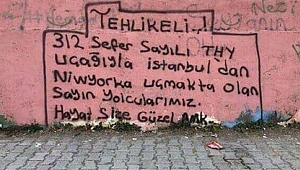 TEHLİKELİ..!
312 Sefer Sayılı THY
uçağıyla istanbul'dan
Niwyorka uçmakta olan
Sayın yolcularımız.
Hayat Size Güzel AMK.